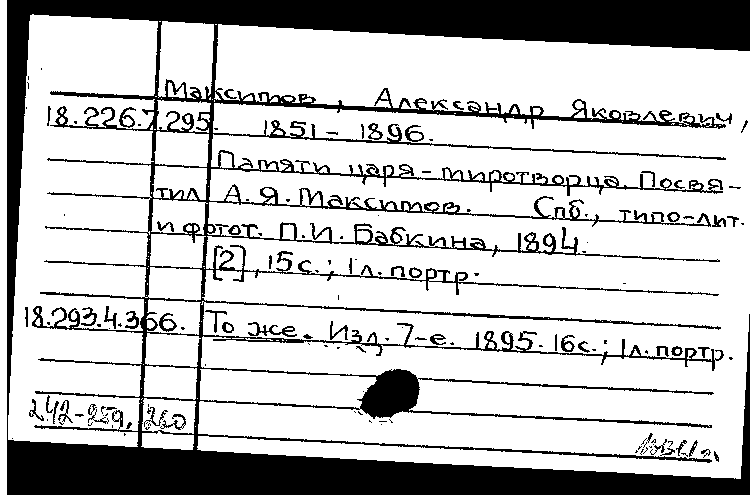 Максимов, Александр Яковлевич,
18.226.7.295. 1851 - 1896.
Памяти царя-миротворца. Посвя-
тил А.Я.Максимов. Спб., типо-лит.
и фотот. П.И.Бабкина, 1894.
[2], 15с.; 1л.портр.
18.293.4.366. То же. Изд. 7-е. 1895. 16с.; 1л.портр.
242-259, 260